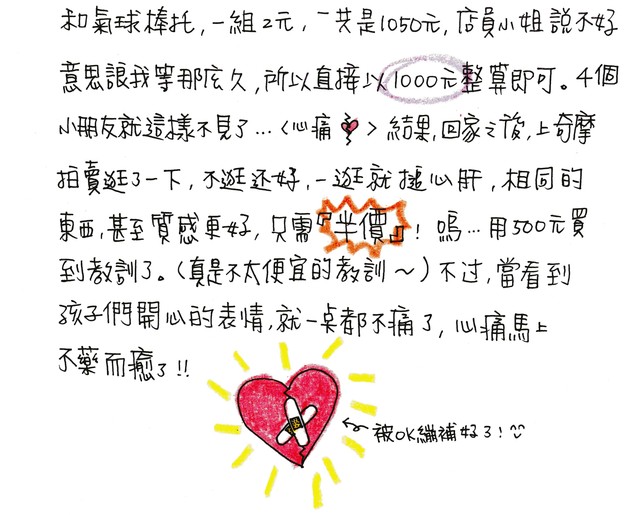 和氣球棒托,一組2元,一共是1050元,店員小姐說不好
意思讓我等那庅久,所以直接以1000元整算即可。4個
小朋友就這樣不見了…<心痛>結果,回家之後,上奇摩
拍賣逛了一下,不逛还好,一逛就搥心肝,相同的
東西,甚至質感更好,只需『半價』!嗚…用500元買
到教訓了。(真是不太便宜的教訓~)不过,當看到
孩子們開心的表情,就一桌都不痛了,心痛馬上
不藥而癒了!!
被OK繃補好了!